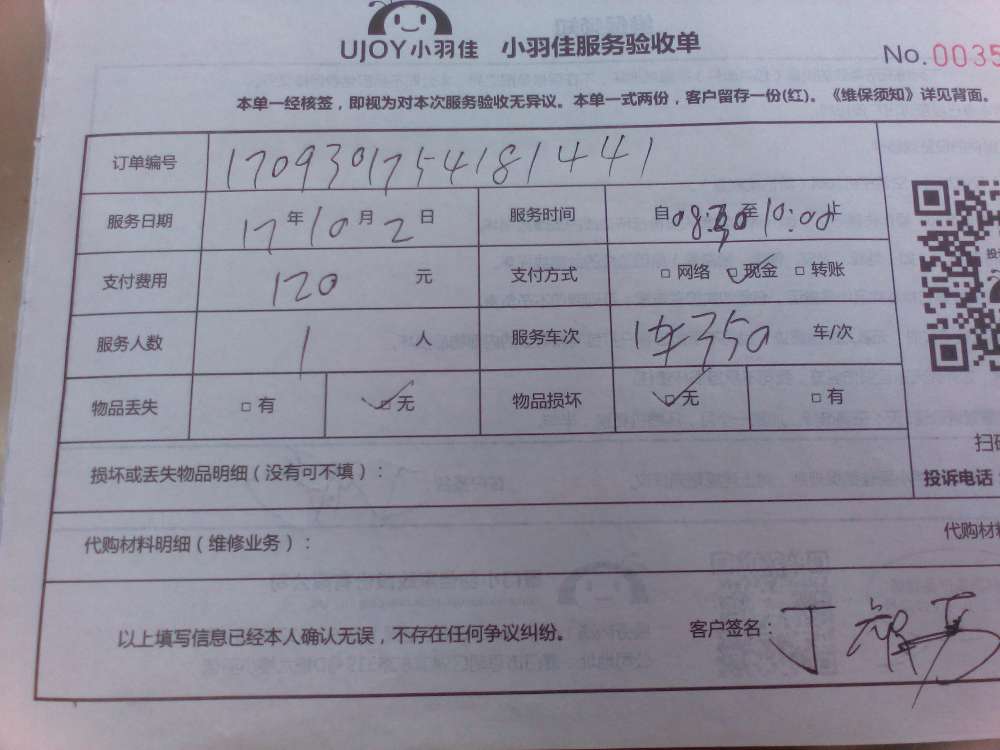 UJOY小羽佳 小羽佳服务验收单
No. 0035
本单一经核签，即视为对本次服务验收无异议。本单一式两份，客户留存一份(红)。《维保须知》详见背面。
订单编号 170930175418144 1
服务日期 17年10月2日 服务时间 自08:30至10:00止
支付费用 120 元 支付方式 □网络 ☑现金 □转账
服务人数 1 人 服务车次 车/次
物品丢失 □有 ☑无 物品损坏 ☑无 □有
损坏或丢失物品明细（没有可不填）：
扫
投诉电话：
代购材料明细（维修业务）：
代购材
以上填写信息已经本人确认无误，不存在任何争议纠纷。 客户签名：丁